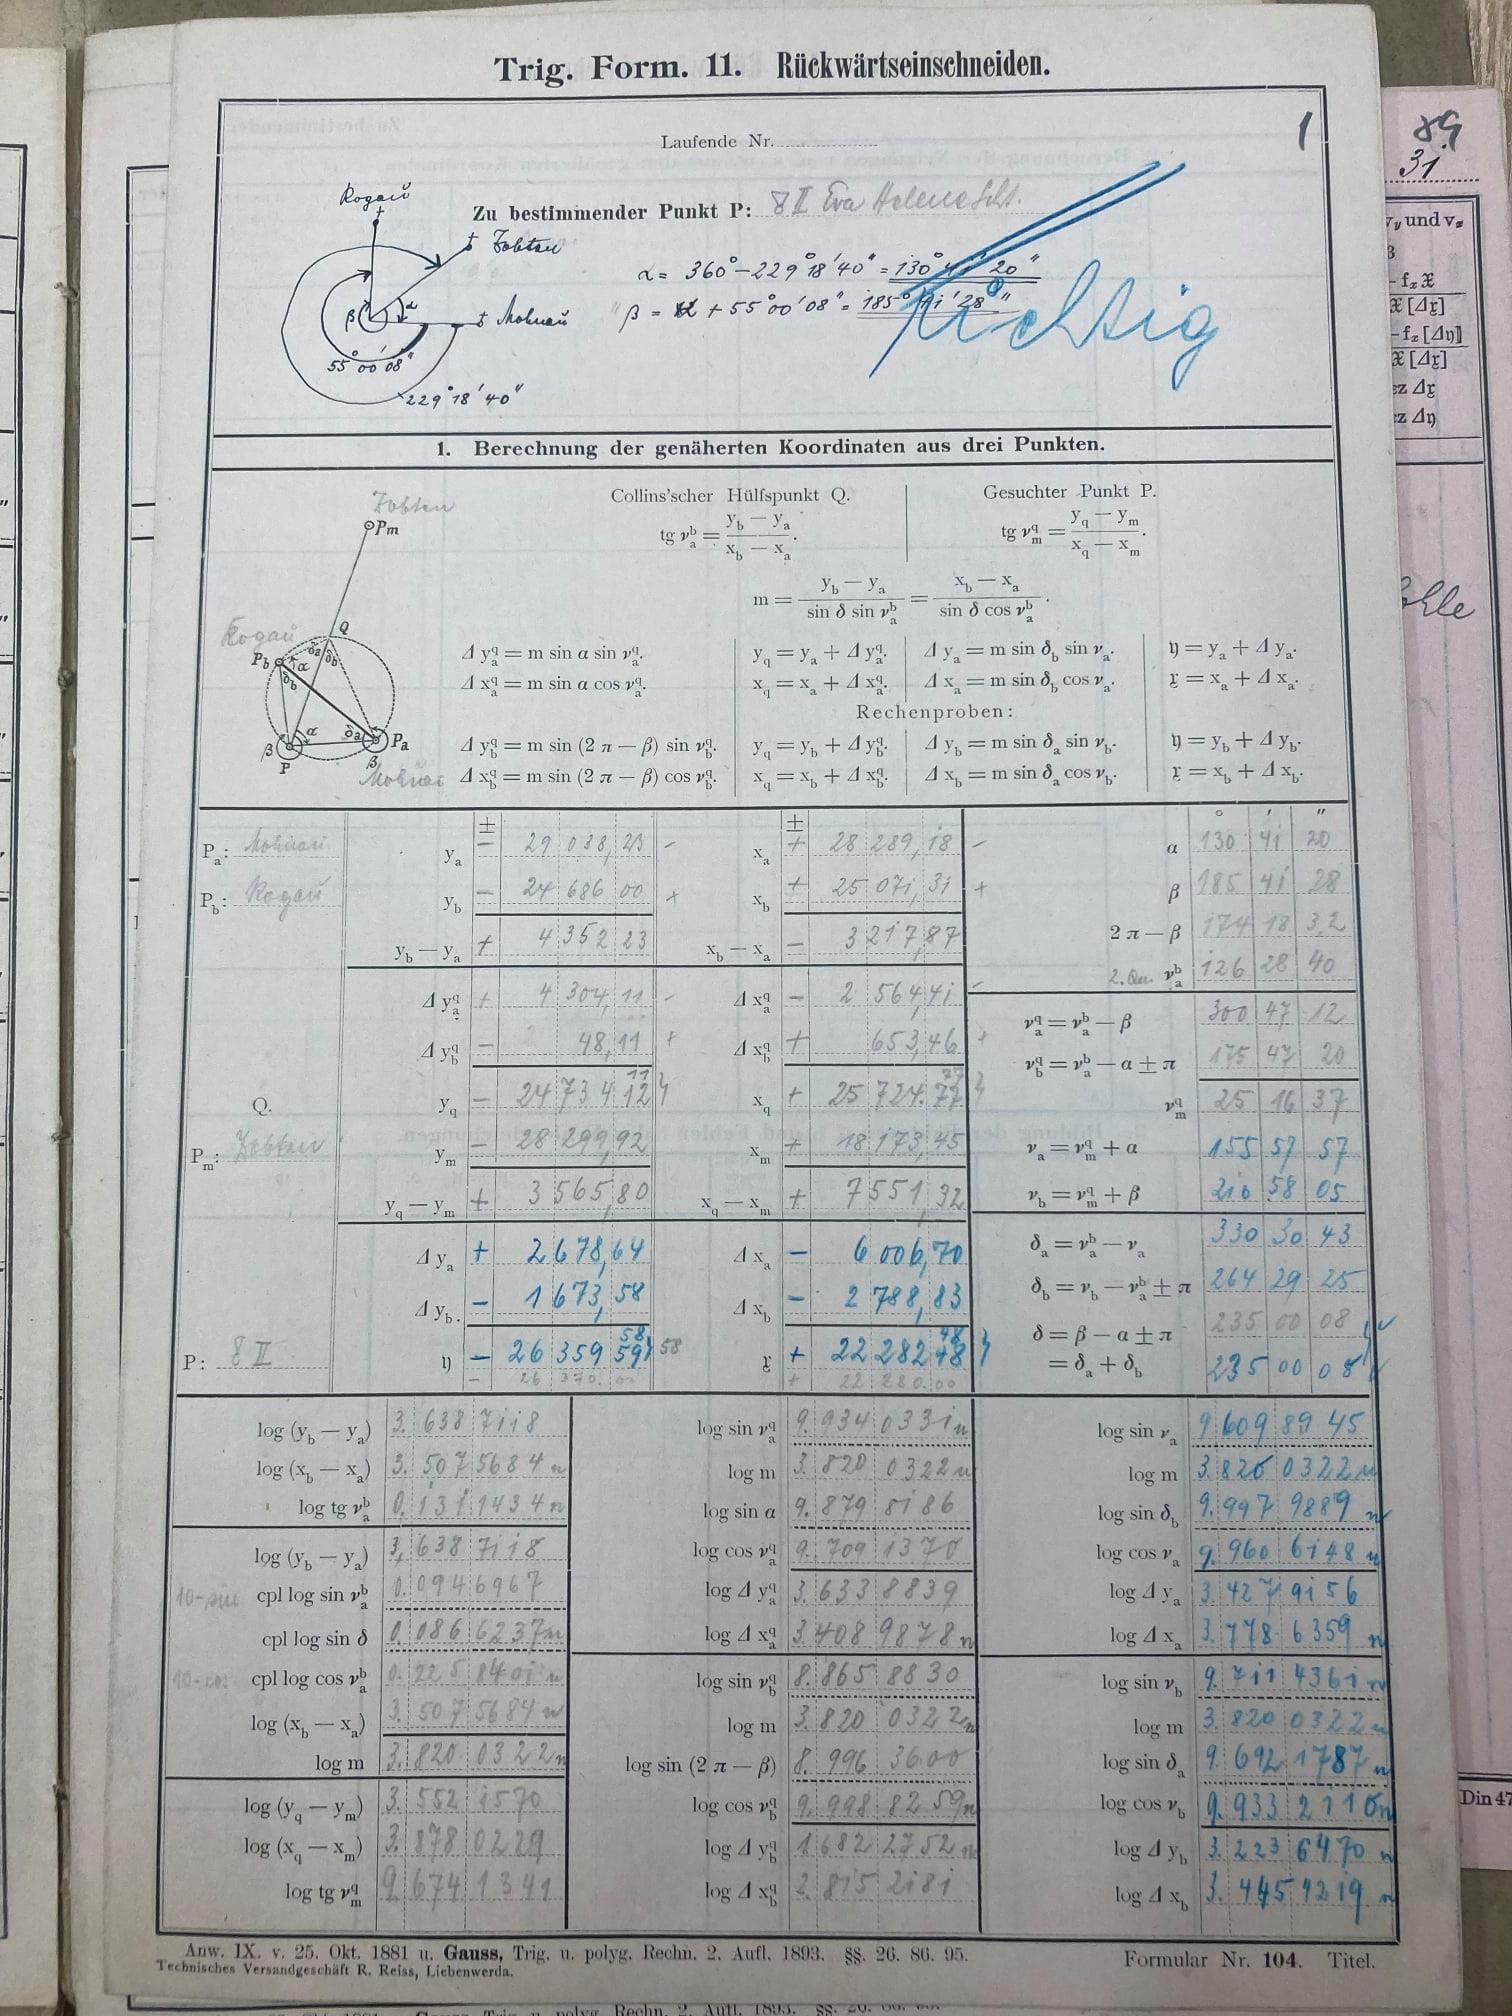 Trig. Form. 11. Rückwärtseinschneiden.
1
89
31.
Laufende Nr.
Zu bestimmender Punkt P: 8 II Eva Helene Scht.
Rogaŭ
Zobten
Mohnaŭ
β α
55° 00' 08"
229° 18' 40"
α = 360° – 229° 18' 40" = 130° 41' 20"
β = α + 55° 00' 08" = 185° 41' 28"
richtig
1. Berechnung der genäherten Koordinaten aus drei Punkten.
Collins'scher Hülfspunkt Q.
Gesuchter Punkt P.
tg ν_a^b = (y_b — y_a) / (x_b — x_a).
tg ν_m^q = (y_q — y_m) / (x_q — x_m).
m = (y_b — y_a) / (sin δ sin ν_a^b) = (x_b — x_a) / (sin δ cos ν_a^b).
Zobten
P_m
Rogaŭ
P_b
Q
P_a
P
Mohnaŭ
Δ y_a^q = m sin α sin ν_a^q. y_q = y_a + Δ y_a^q. Δ y_a = m sin δ_b sin ν_a. 𝔶 = y_a + Δ y_a.
Δ x_a^q = m sin α cos ν_a^q. x_q = x_a + Δ x_a^q. Δ x_a = m sin δ_b cos ν_a. 𝔵 = x_a + Δ x_a.
Rechenproben:
Δ y_b^q = m sin (2 π — β) sin ν_b^q. y_q = y_b + Δ y_b^q. Δ y_b = m sin δ_a sin ν_b. 𝔶 = y_b + Δ y_b.
Δ x_b^q = m sin (2 π — β) cos ν_b^q. x_q = x_b + Δ x_b^q. Δ x_b = m sin δ_a cos ν_b. 𝔵 = x_b + Δ x_b.
± ± ° ' "
P_a: Mohnau y_a – 29 038,23 – x_a + 28 289,18 – α 130 41 20
P_b: Rogaŭ y_b – 24 686 00 + x_b + 25 071,31 + β 185 41 28
y_b — y_a + 4 352 23 x_b — x_a – 3 217,87 2 π — β 174 18 32
2. Qu. ν_a^b 126 28 40
Δ y_a^q + 4 304,11 – Δ x_a^q – 2 564,41 – ν_a^q = ν_a^b — β 300 47 12
Δ y_b^q – 48,11 + Δ x_b^q + 653,46 + ν_b^q = ν_a^b — α ± π 175 47 20
11 77
Q. y_q – 24 734 12 x_q + 25 724.77 ν_m^q 25 16 37
P_m: Zobten y_m – 28 299,92 x_m + 18 173,45 ν_a = ν_m^q + α 155 57 57
y_q — y_m + 3 565,80 x_q — x_m + 7 551,32 ν_b = ν_m^q + β 210 58 05
Δ y_a + 2 678,64 Δ x_a – 6 006,70 δ_a = ν_a^b — ν_a 330 30 43
Δ y_b. – 1 673,58 Δ x_b – 2 788,83 δ_b = ν_b — ν_a^b ± π 264 29 25
58 48
P: 8 II 𝔶 – 26 359 59 58 𝔵 + 22 282 48 δ = β — α ± π 235 00 08
– 26 370.00 + 22 280.00 = δ_a + δ_b 235 00 08
log (y_b — y_a) 3. 638 7118 log sin ν_a^q 9. 934 0331 n log sin ν_a 9 609 8945
log (x_b — x_a) 3. 507 5684 n log m 3. 820 0322 n log m 3. 820 0322 n
log tg ν_a^b 0. 131 1434 n log sin α 9. 879 8186 log sin δ_b 9. 997 9889 n
log (y_b — y_a) 3, 638 7118 log cos ν_a^q 9. 709 1370 log cos ν_a 9. 960 6148 n
10-sin cpl log sin ν_a^b 0. 094 6967 log Δ y_a^q 3. 633 8839 log Δ y_a 3. 427 9156
cpl log sin δ 0. 086 6237 n log Δ x_a^q 3 408 9878 n log Δ x_a 3. 778 6359 n
10-cos cpl log cos ν_a^b 0. 225 8401 n log sin ν_b^q 8. 865 8830 log sin ν_b 9. 711 4361 n
log (x_b — x_a) 3. 507 5684 n log m 3. 820 0322 n log m 3. 820 0322 n
log m 3. 820 0322 n log sin (2 π — β) 8. 996 3600 log sin δ_a 9. 692 1787 n
log (y_q — y_m) 3. 552 1570 log cos ν_b^q 9. 998 8259 n log cos ν_b 9. 933 2110 n
log (x_q — x_m) 3. 878 0229 log Δ y_b^q 1. 682 2752 n log Δ y_b 3. 223 6470 n
log tg ν_m^q 9. 674 1341 log Δ x_b^q 2. 815 2181 log Δ x_b 3. 445 4219 n
Anw. IX. v. 25. Okt. 1881 u. Gauss, Trig. u. polyg. Rechn. 2. Aufl. 1893. §§. 26. 86. 95. Formular Nr. 104. Titel.
Technisches Versandgeschäft R. Reiss, Liebenwerda.
Din 47